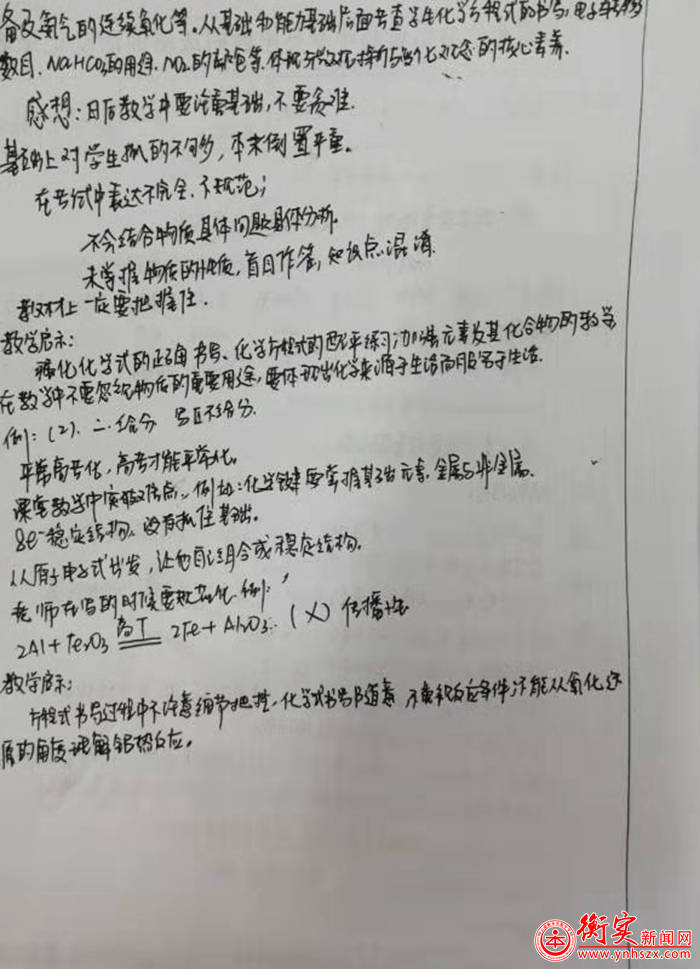 备及氨气的连续氧化等。从基础和能力基础层面考查学生化学方程式的书写,电子转移
数目、NaHCO₃的用途、NO₂的颜色等,体现宏观辨析与变化观念的核心素养。
感想:日后教学中要注重基础,不要贪难.
基础上对学生抓的不够多,本末倒置严重。
在考试中表达不完全、不规范;
不会结合物质具体问题具体分析.
未掌握物质的性质,盲目作答,知识点混淆.
教材上一定要把握住.
教学启示:
强化化学式的正确书写、化学方程式的配平练习,加强元素及其化合物的教学
在教学中不要忽视物质的重要用途,要体现出化学来源于生活而服务于生活.
例:(2).二给分 且不给分.
平常高考化,高考才能平常化。
课堂教学中突破焦点,例如:化学键要掌握基础元素.金属与非金属.
8e⁻稳定结构、没有抓住基础。
从原子电子式出发,让他自己组合成稳定结构.
老师在写的时候要规范化.例:
2Al+Fe₂O₃ 高T 2Fe+Al₂O₃.(×)传播性
教学启示:
方程式书写过程中不注意细节把握,化学式书写随意,不重视反应条件,不能从氧化还
原的角度理解铝热反应。
衡实新闻网
www.ynhszx.com